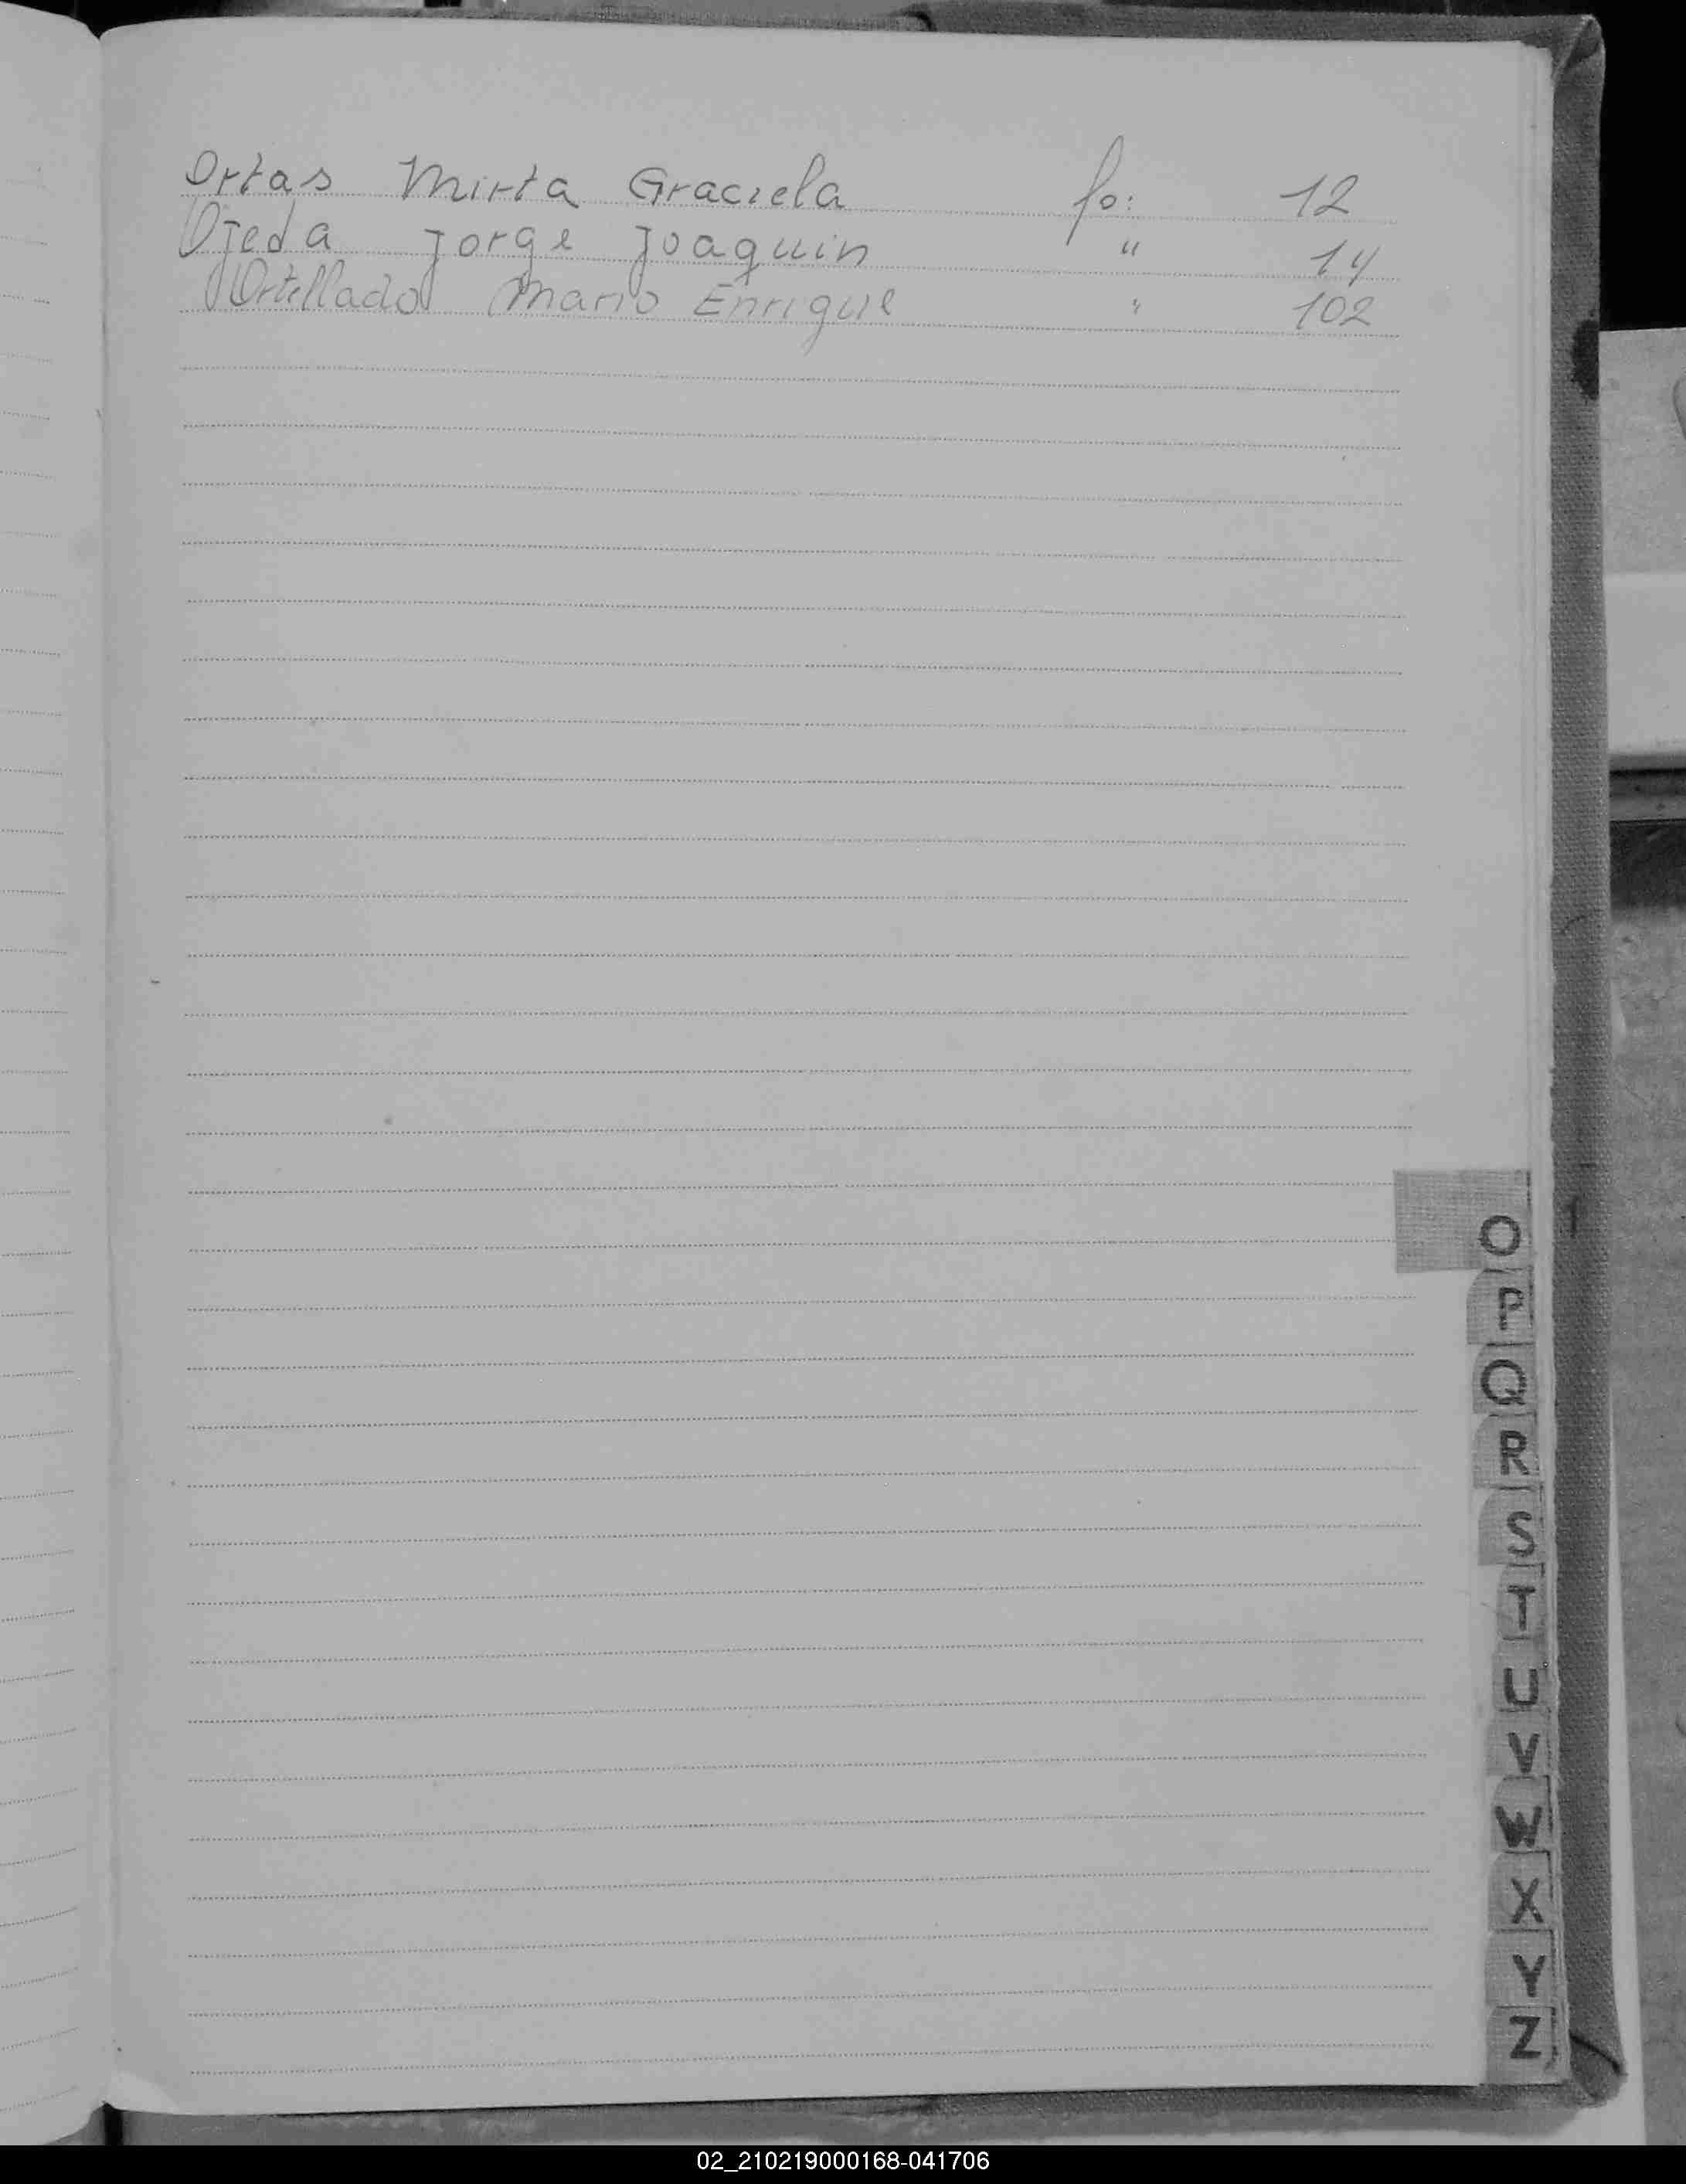 Ortas Mirta Graciela fo: 12
Ojeda Jorge Joaquin " 14
Ortellado Mario Enrique " 102
O
P
Q
R
S
T
U
V
W
X
Y
Z
02_210219000168-041706